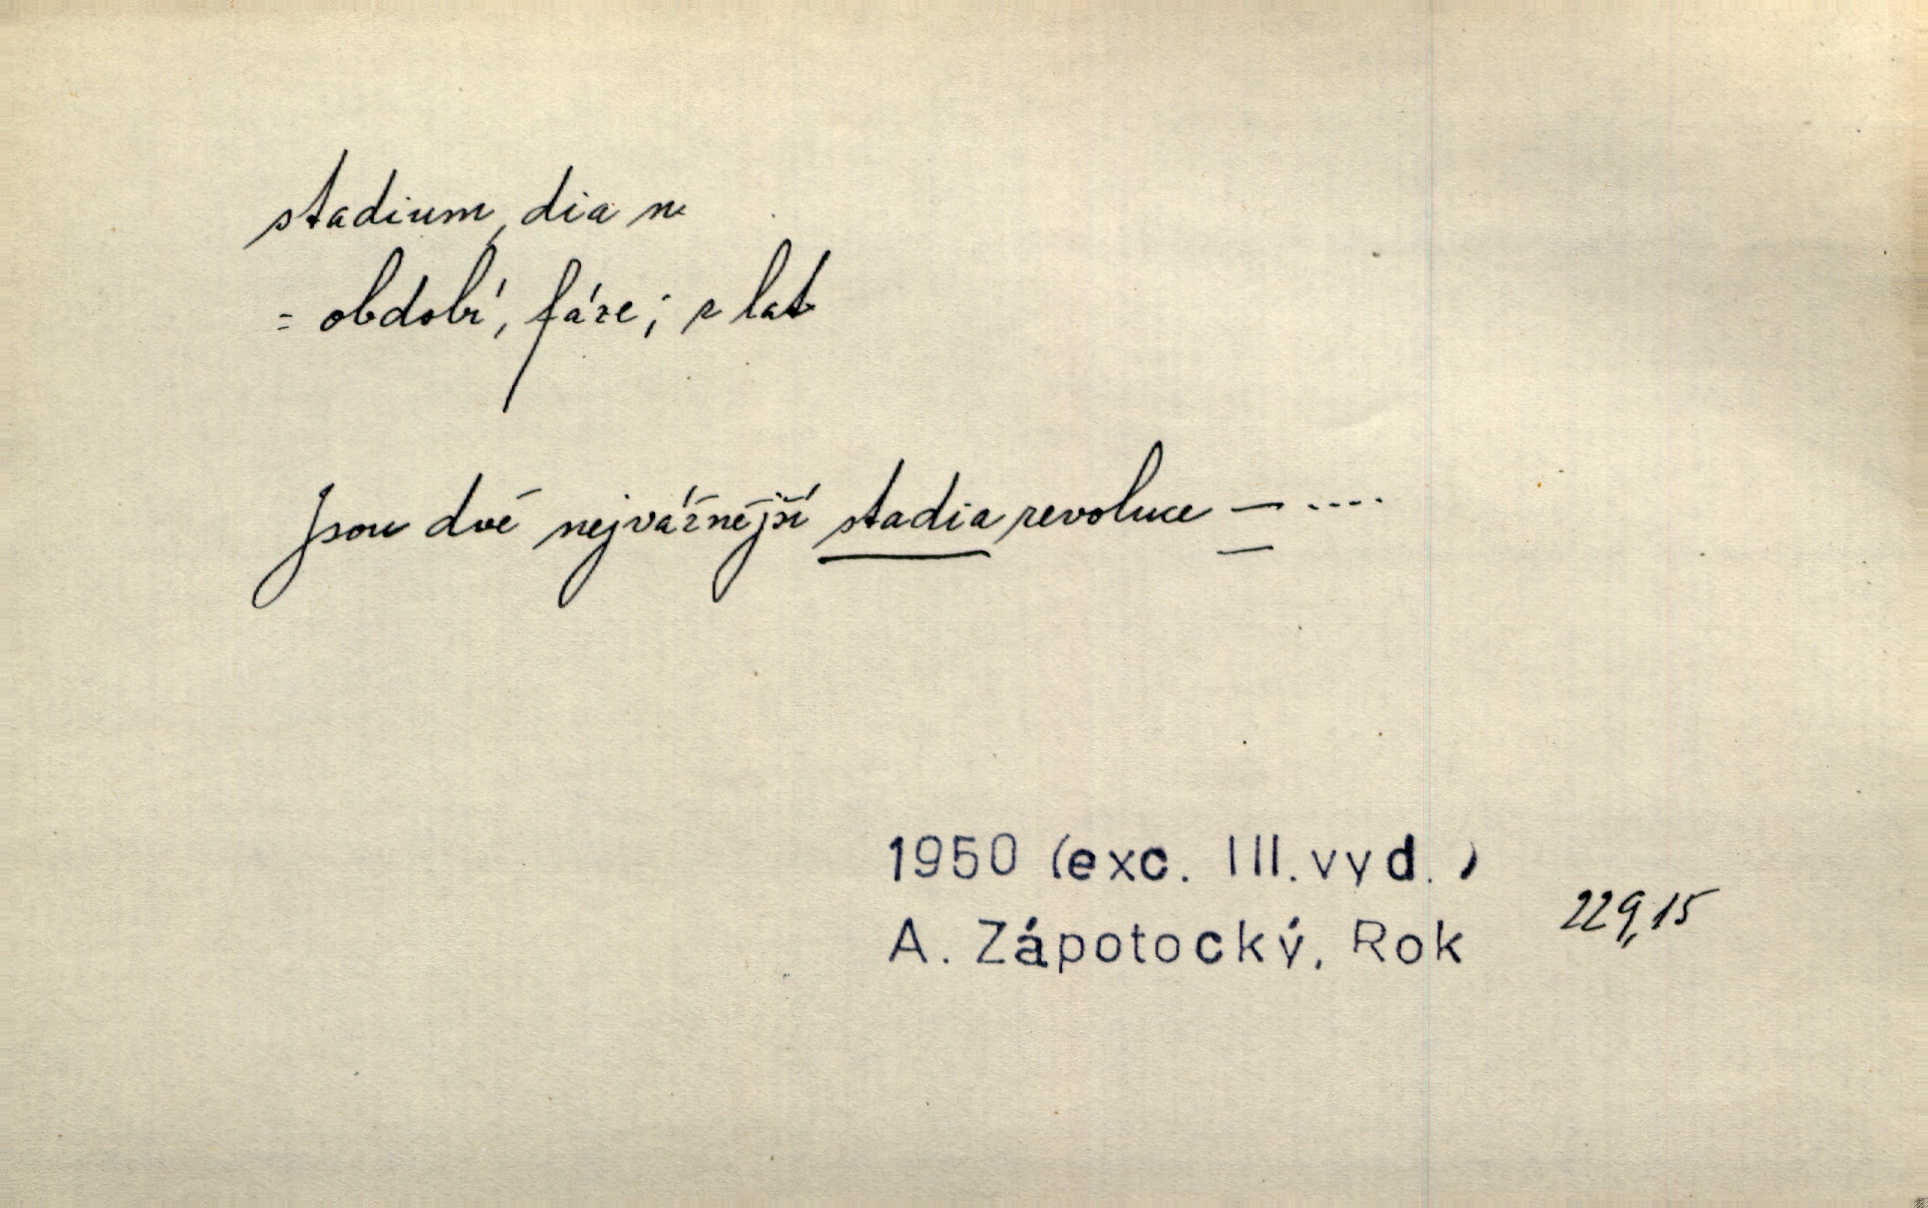 stadium, dia n
= období, fáze; z lat
Jsou dvě nejvážnější stadia revoluce — ....
1950 (exc. III. vyd.)
A. Zápotocký, Rok
229,15